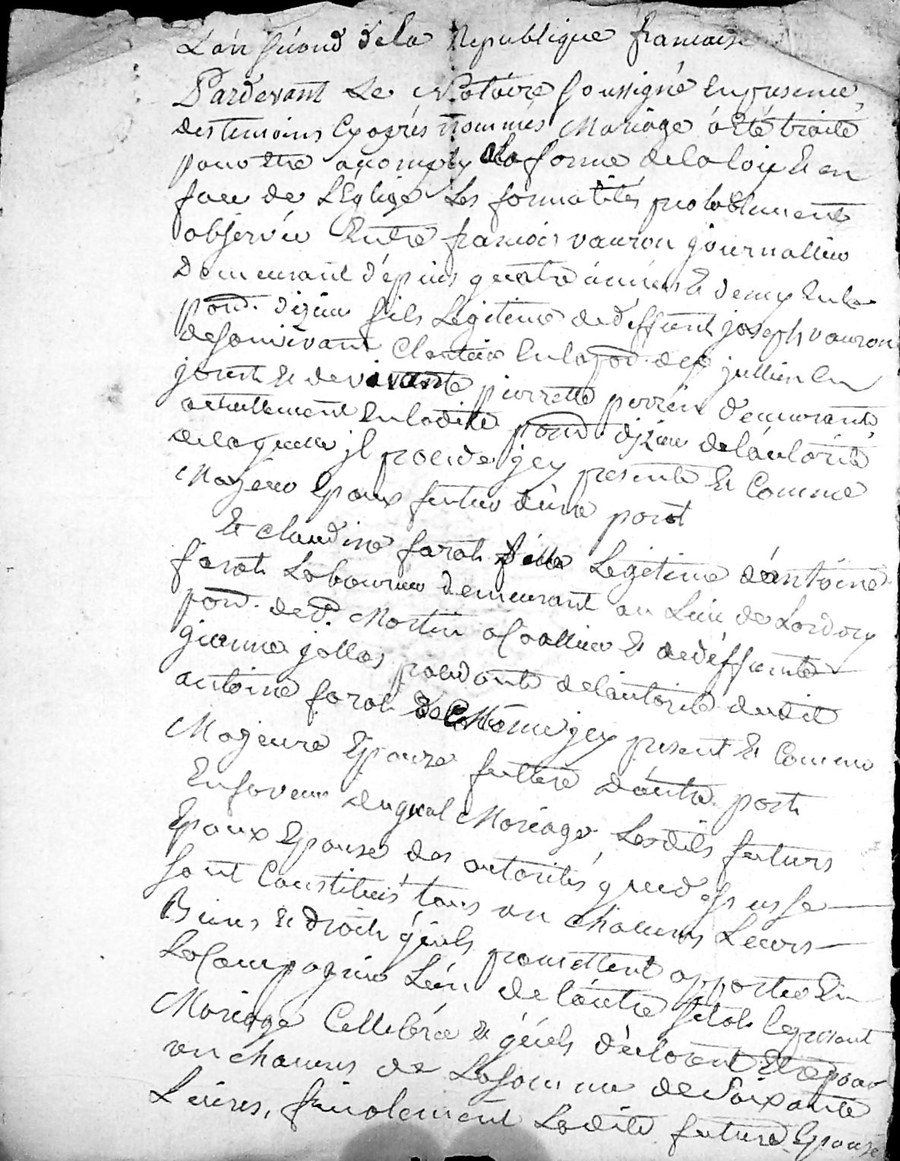 L'an second de la Republique francaise
Pardevant Le Notaire soussigné En presence
des temoins Cy après nommes Mariage a été traité
pour être acomply a la forme de la loix Et en
face de L'Eglize Les formalités prealablement
observée Entre francois vauron journallier
Demeurant depuis quatre années Et demy En la
parr. dizieu fils Legitime de deffunt joseph vauron
de son vivant En la parr. de jullien En
jarest Et de vivante pierrette perrein demeurante
actuellement En ladite parr. dizieu de l'autorité
de laquelle jl procede jcy presente Et Comme
Majeur Epoux futur d'une part
Et claudine farah fille Legitime d'antoine
farah Laboureur demeurant au Lieu de
parr. de St. Martin Et de deffunte
jeanne jollas procedante de l'autorité dudit
antoine farah jcy present Et Comme
Majeure Epouze future d'autre part
En faveur duquel Mariage Lesdits futurs
Epoux Epouse des autorités que dessus se
sont Constitués tous un chacuns Leurs
Biens Et droits qu'ils promettent apporter En
La Compagnie L'un de l'autre sitot Le present
Mariage Cellebré Et qu'ils declarent
un chacuns de La somme de soixante
Livres, finalement Ladite future Epouse